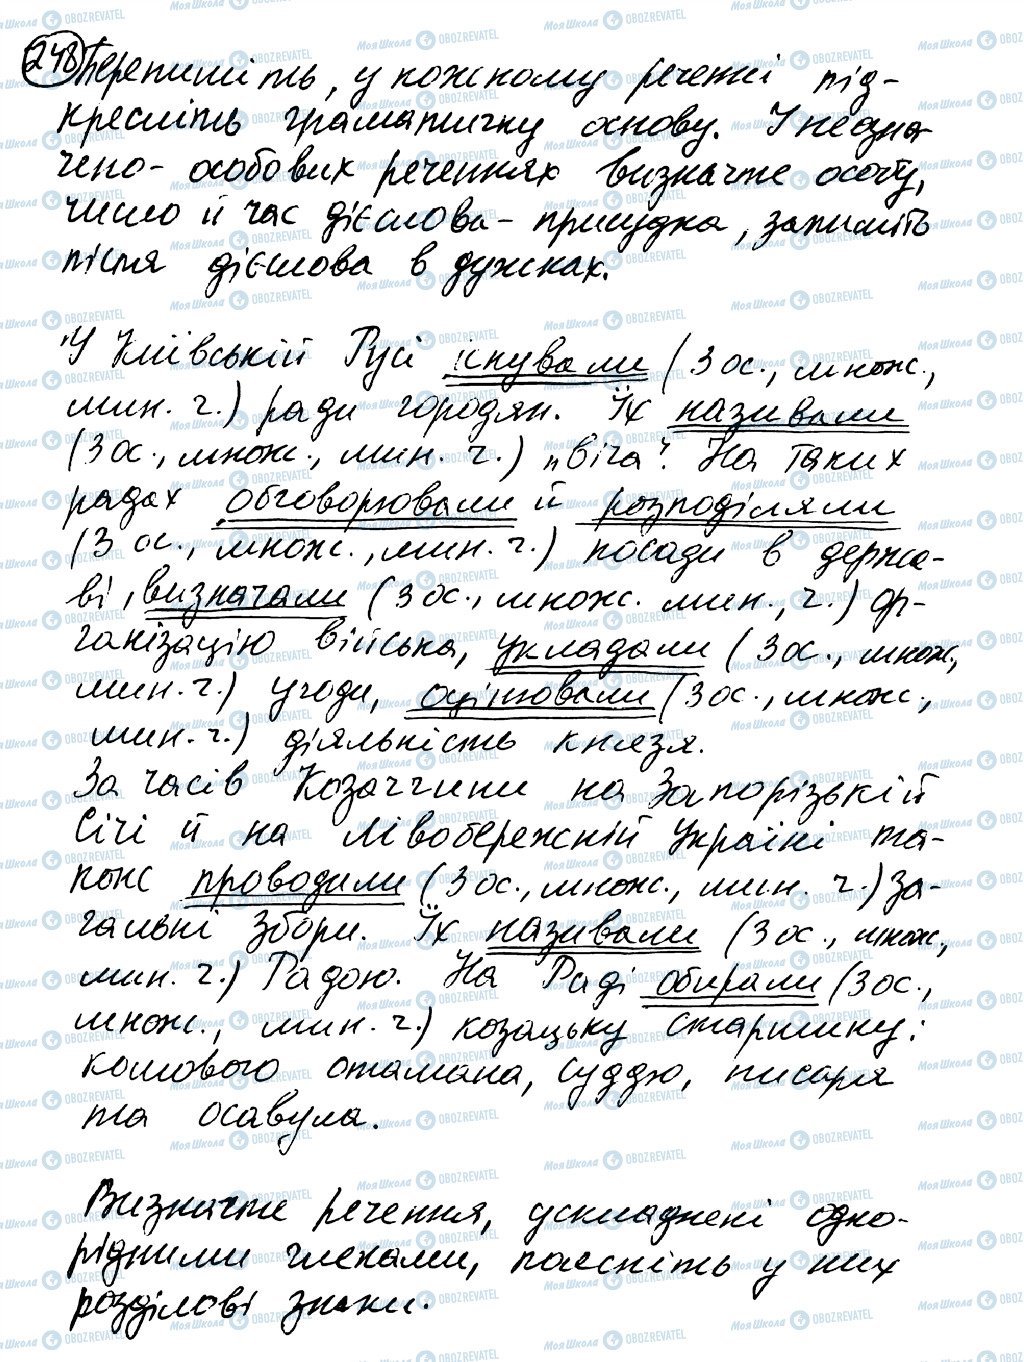 248 Перепишіть, у кожному реченні під-
кресліть граматичну основу. У неозна
чено-особових реченнях визначте особу,
число й час дієслова-присудка, запишіть
після дієслова в дужках.
У Київській Русі існували (3 ос., множ.,
мин. ч.) ради городян. Їх називали
(3 ос., множ., мин. ч.) „віча". На таких
радах обговорювали й розподіляли
(3 ос., множ., мин. ч.) посади в держа-
ві, визначали (3 ос., множ. мин., ч.) ор-
ганізацію війська, укладали (3 ос., множ.,
мин. ч.) угоди, оцінювали (3 ос., множ.,
мин. ч.) діяльність князя.
За часів Козаччини на Запорізькій
Січі й на Лівобережній Україні та-
кож проводили (3 ос., множ., мин. ч.) за-
гальні збори. Їх називали (3 ос., множ.,
мин. ч.) Радою. На Раді обирали (3 ос.,
множ., мин. ч.) козацьку старшину:
кошового отамана, суддю, писаря
та осавула.
Визначте речення, ускладнені одно-
рідними членами, поясніть у них
розділові знаки.